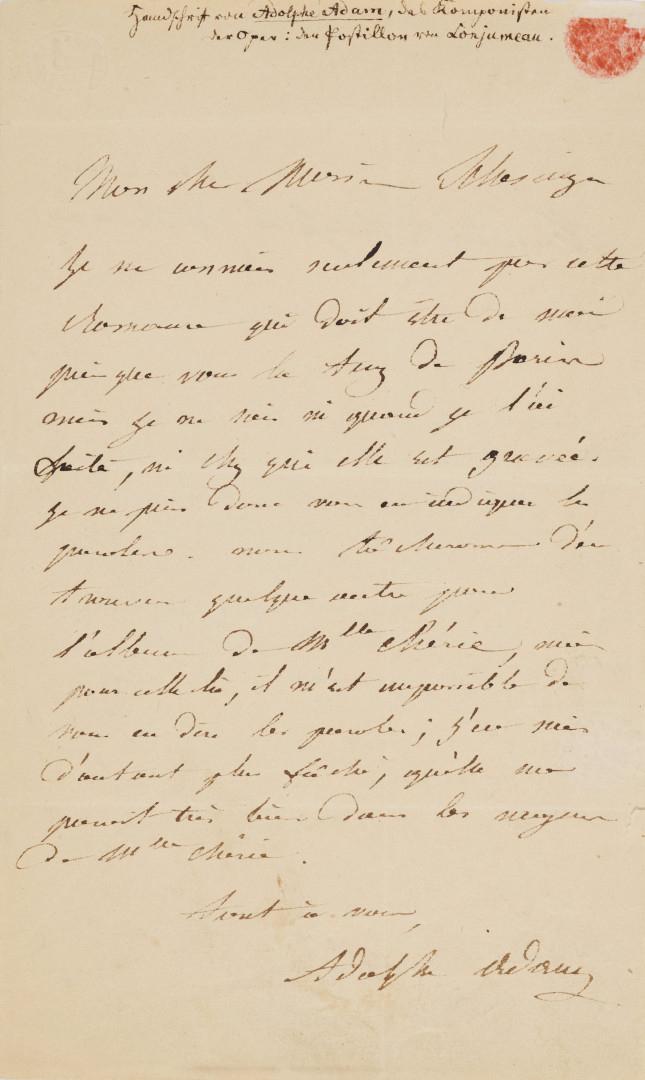 Handschrift von Adolphe Adam, des Komponisten
der Oper: der Postillon von Lonjumeau.
Mon cher Monsieur
Je ne connais seulement pas cette
Romance qui doit être de moi
puisque vous la de
mais je ne sais ni quand je l'ai
faite, ni chez qui elle est gravée.
je ne puis donc vous en indiquer les
paroles. nous tâcherons d'en
trouver quelque autre pour
l'album de Mlle Chérie, mais
pour celle là, il m'est impossible de
vous en dire les paroles; j'en suis
d'autant plus fâché, qu'elle me
parait très bien dans les moyens
de Mlle Chérie.
Tout à vous,
Adolphe Adam